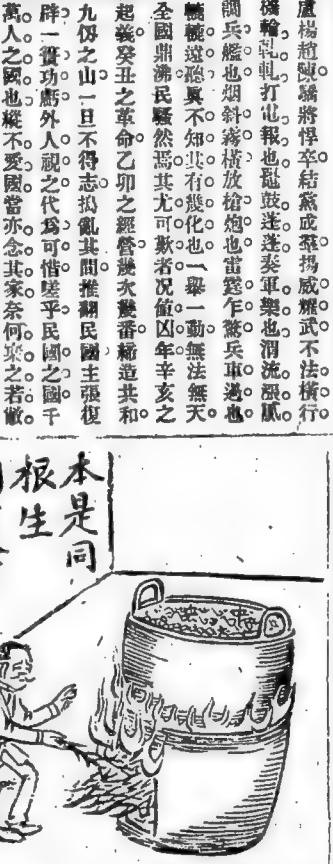 盧楊趙陳驕將悍卒結黨成羣揚威耀武不法橫行
機輪軋軋打電報也鼉鼓逢逢奏軍樂也渭流漲膩
兵艦也烟斜霧橫放槍炮也雷霆乍驚兵車過也
轆轆遠聽眞不知其有幾化也一舉一動無法無天
全國鼎沸民騷然焉其尤可歎者况值凶年辛亥之
起義癸丑之革命乙卯之經營幾次幾番締造共和
九仞之山一旦不得志搗亂其間推翻民國主張復
辟一簣功虧外人視之代爲可惜嗟乎民國之國千
萬人之國也縱不愛國當亦念其家奈何棄之若敝
本是同
根生